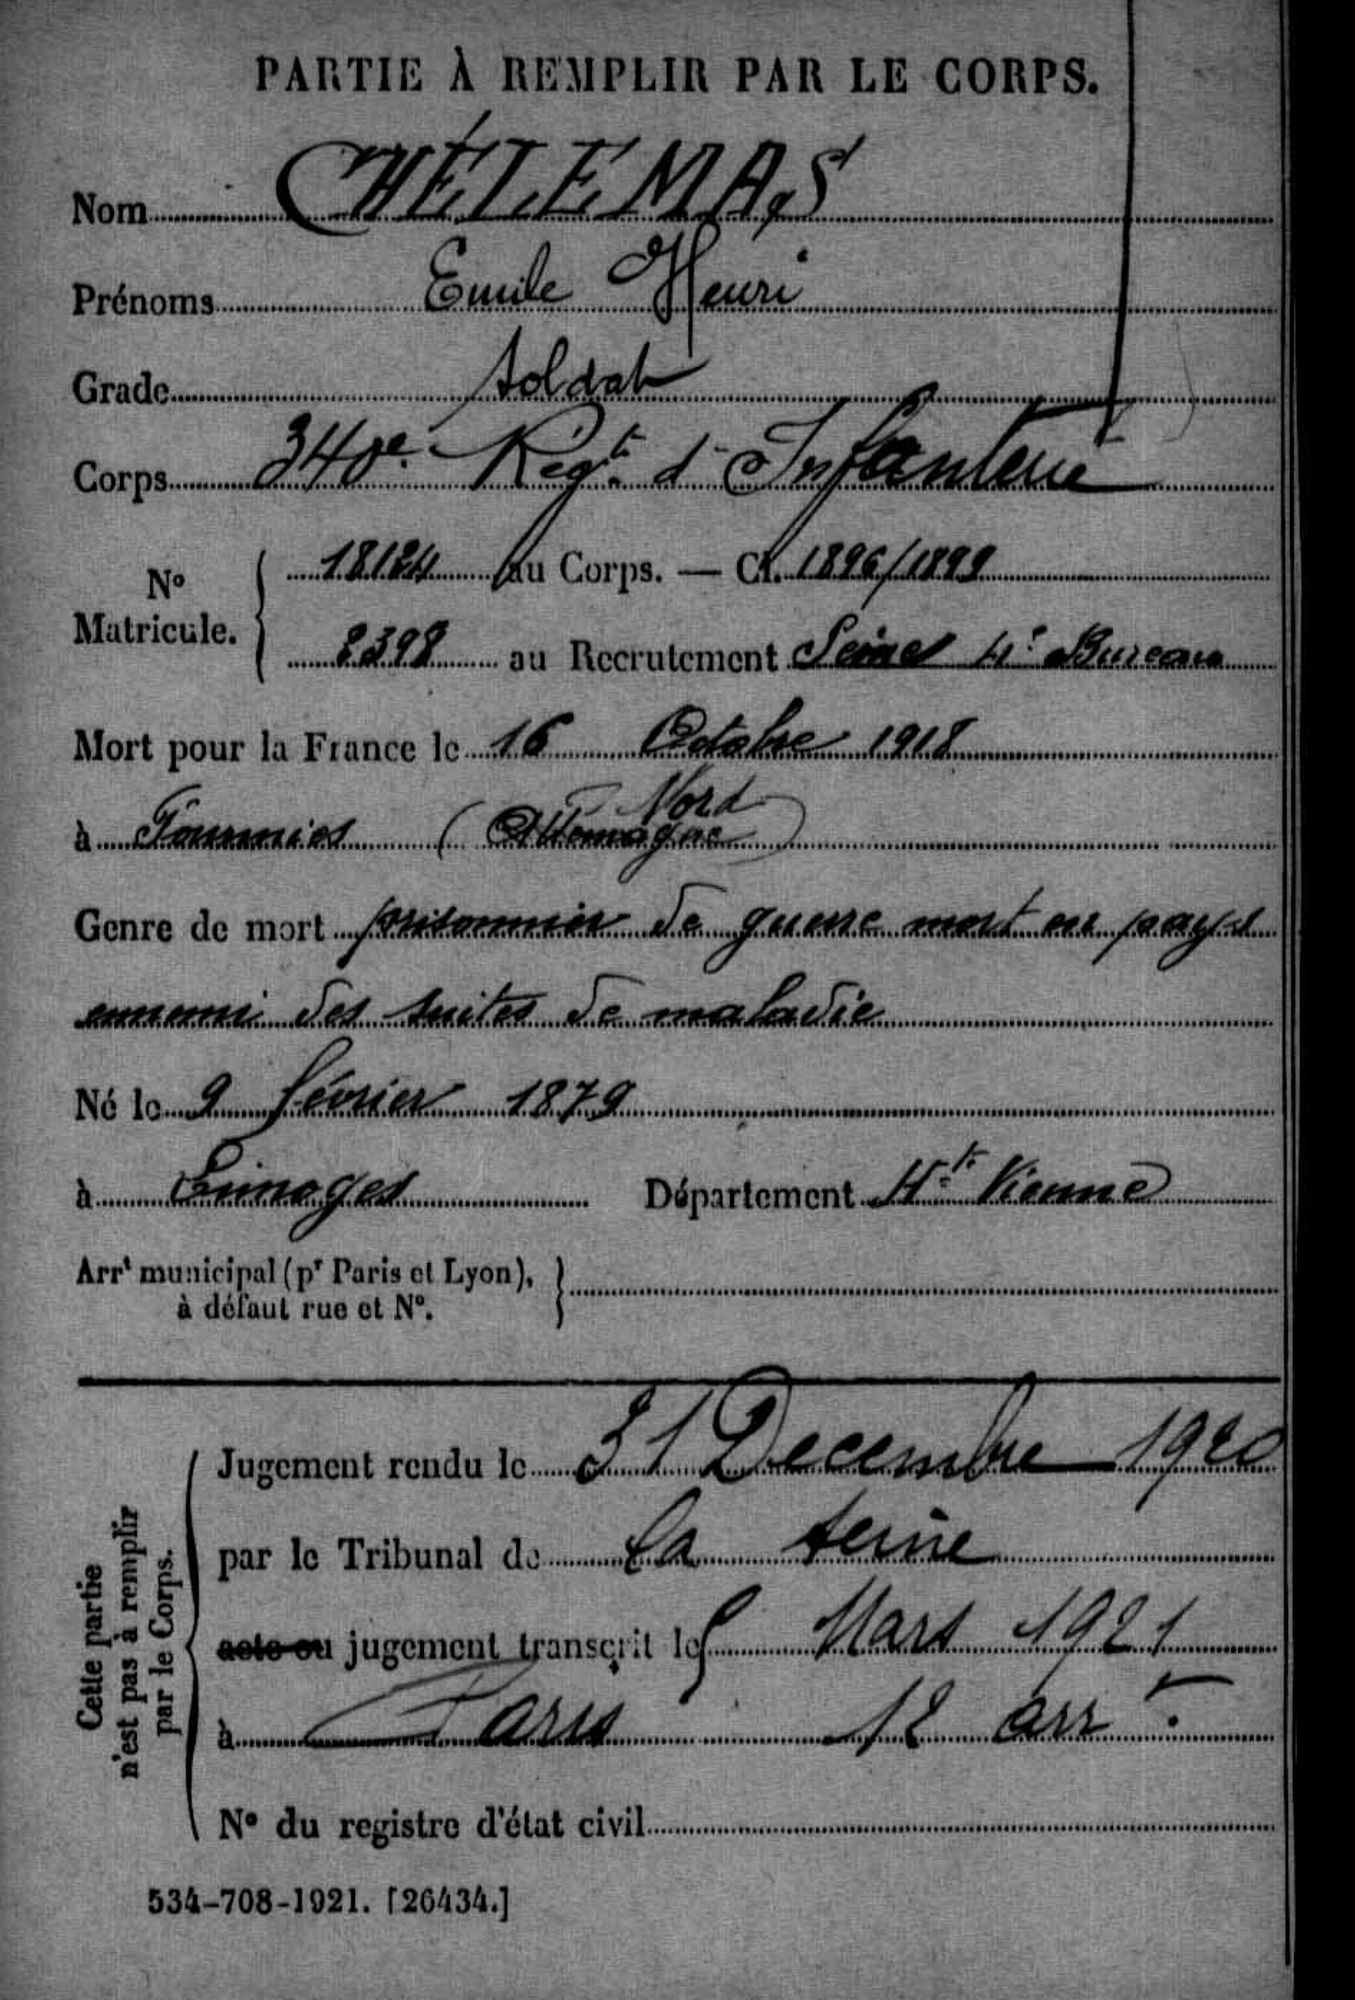 PARTIE À REMPLIR PAR LE CORPS.
Nom CHÉLEMAS
Prénoms Emile Henri
Grade Soldat
Corps 340e Regt d'Infanterie
No Matricule. 18124 au Corps. — Cl. 1896/1899
2398 au Recrutement Seine 4e Bureau
Mort pour la France le 16 Octobre 1918
Nord
à Fourmies (Allemagne)
Genre de mort prisonnier de guerre mort en pays
ennemi des suites de maladie
Né le 9 février 1879
à Limoges Département Hte Vienne
Arrt municipal (pr Paris et Lyon),
à défaut rue et No.
Cette partie
n'est pas à remplir
par le Corps.
Jugement rendu le 31 Decembre 1920
par le Tribunal de la Seine
acte ou jugement transcrit le 5 Mars 1921
à Paris 12 arrt
No du registre d'état civil
534-708-1921. [26434.]